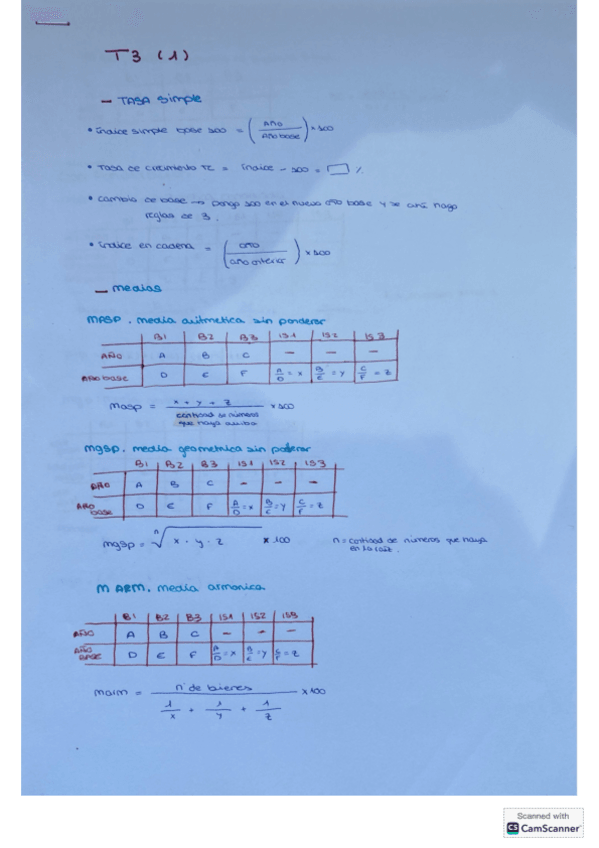 T3 (1)
- TASA simple
• índice simple base 100 = (AÑO / Año base) × 100
• Tasa de crecimiento TC = índice - 100 = □ %
• cambio de base → pongo 100 en el nuevo año base y de ahí hago
reglas de 3.
• índice en cadena = (año / año anterior) × 100
- medias
MASP. media aritmetica sin ponderar
B1 B2 B3 IS1 IS2 IS3
AÑO A B C - - -
AÑO base D E F A/D = x B/E = y C/F = z
masp = x + y + z / cantidad de números que haya arriba × 100
mgsp. media geometrica sin poderar
B1 B2 B3 IS1 IS2 IS3
AÑO A B C - - -
AÑO base D E F A/D = x B/E = y C/F = z
mgsp = ⁿ√x · y · z × 100 n = cantidad de números que haya
en la raíz.
M ARM. media armonica
B1 B2 B3 IS1 IS2 IS3
AÑO A B C - - -
AÑO BASE D E F A/D = x B/E = y C/F = z
marm = nº de bienes / 1/x + 1/y + 1/z × 100
Scanned with
CS CamScanner